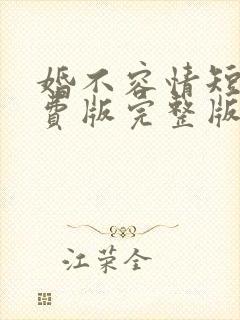 婚不容情短
费版完整版
江荣全